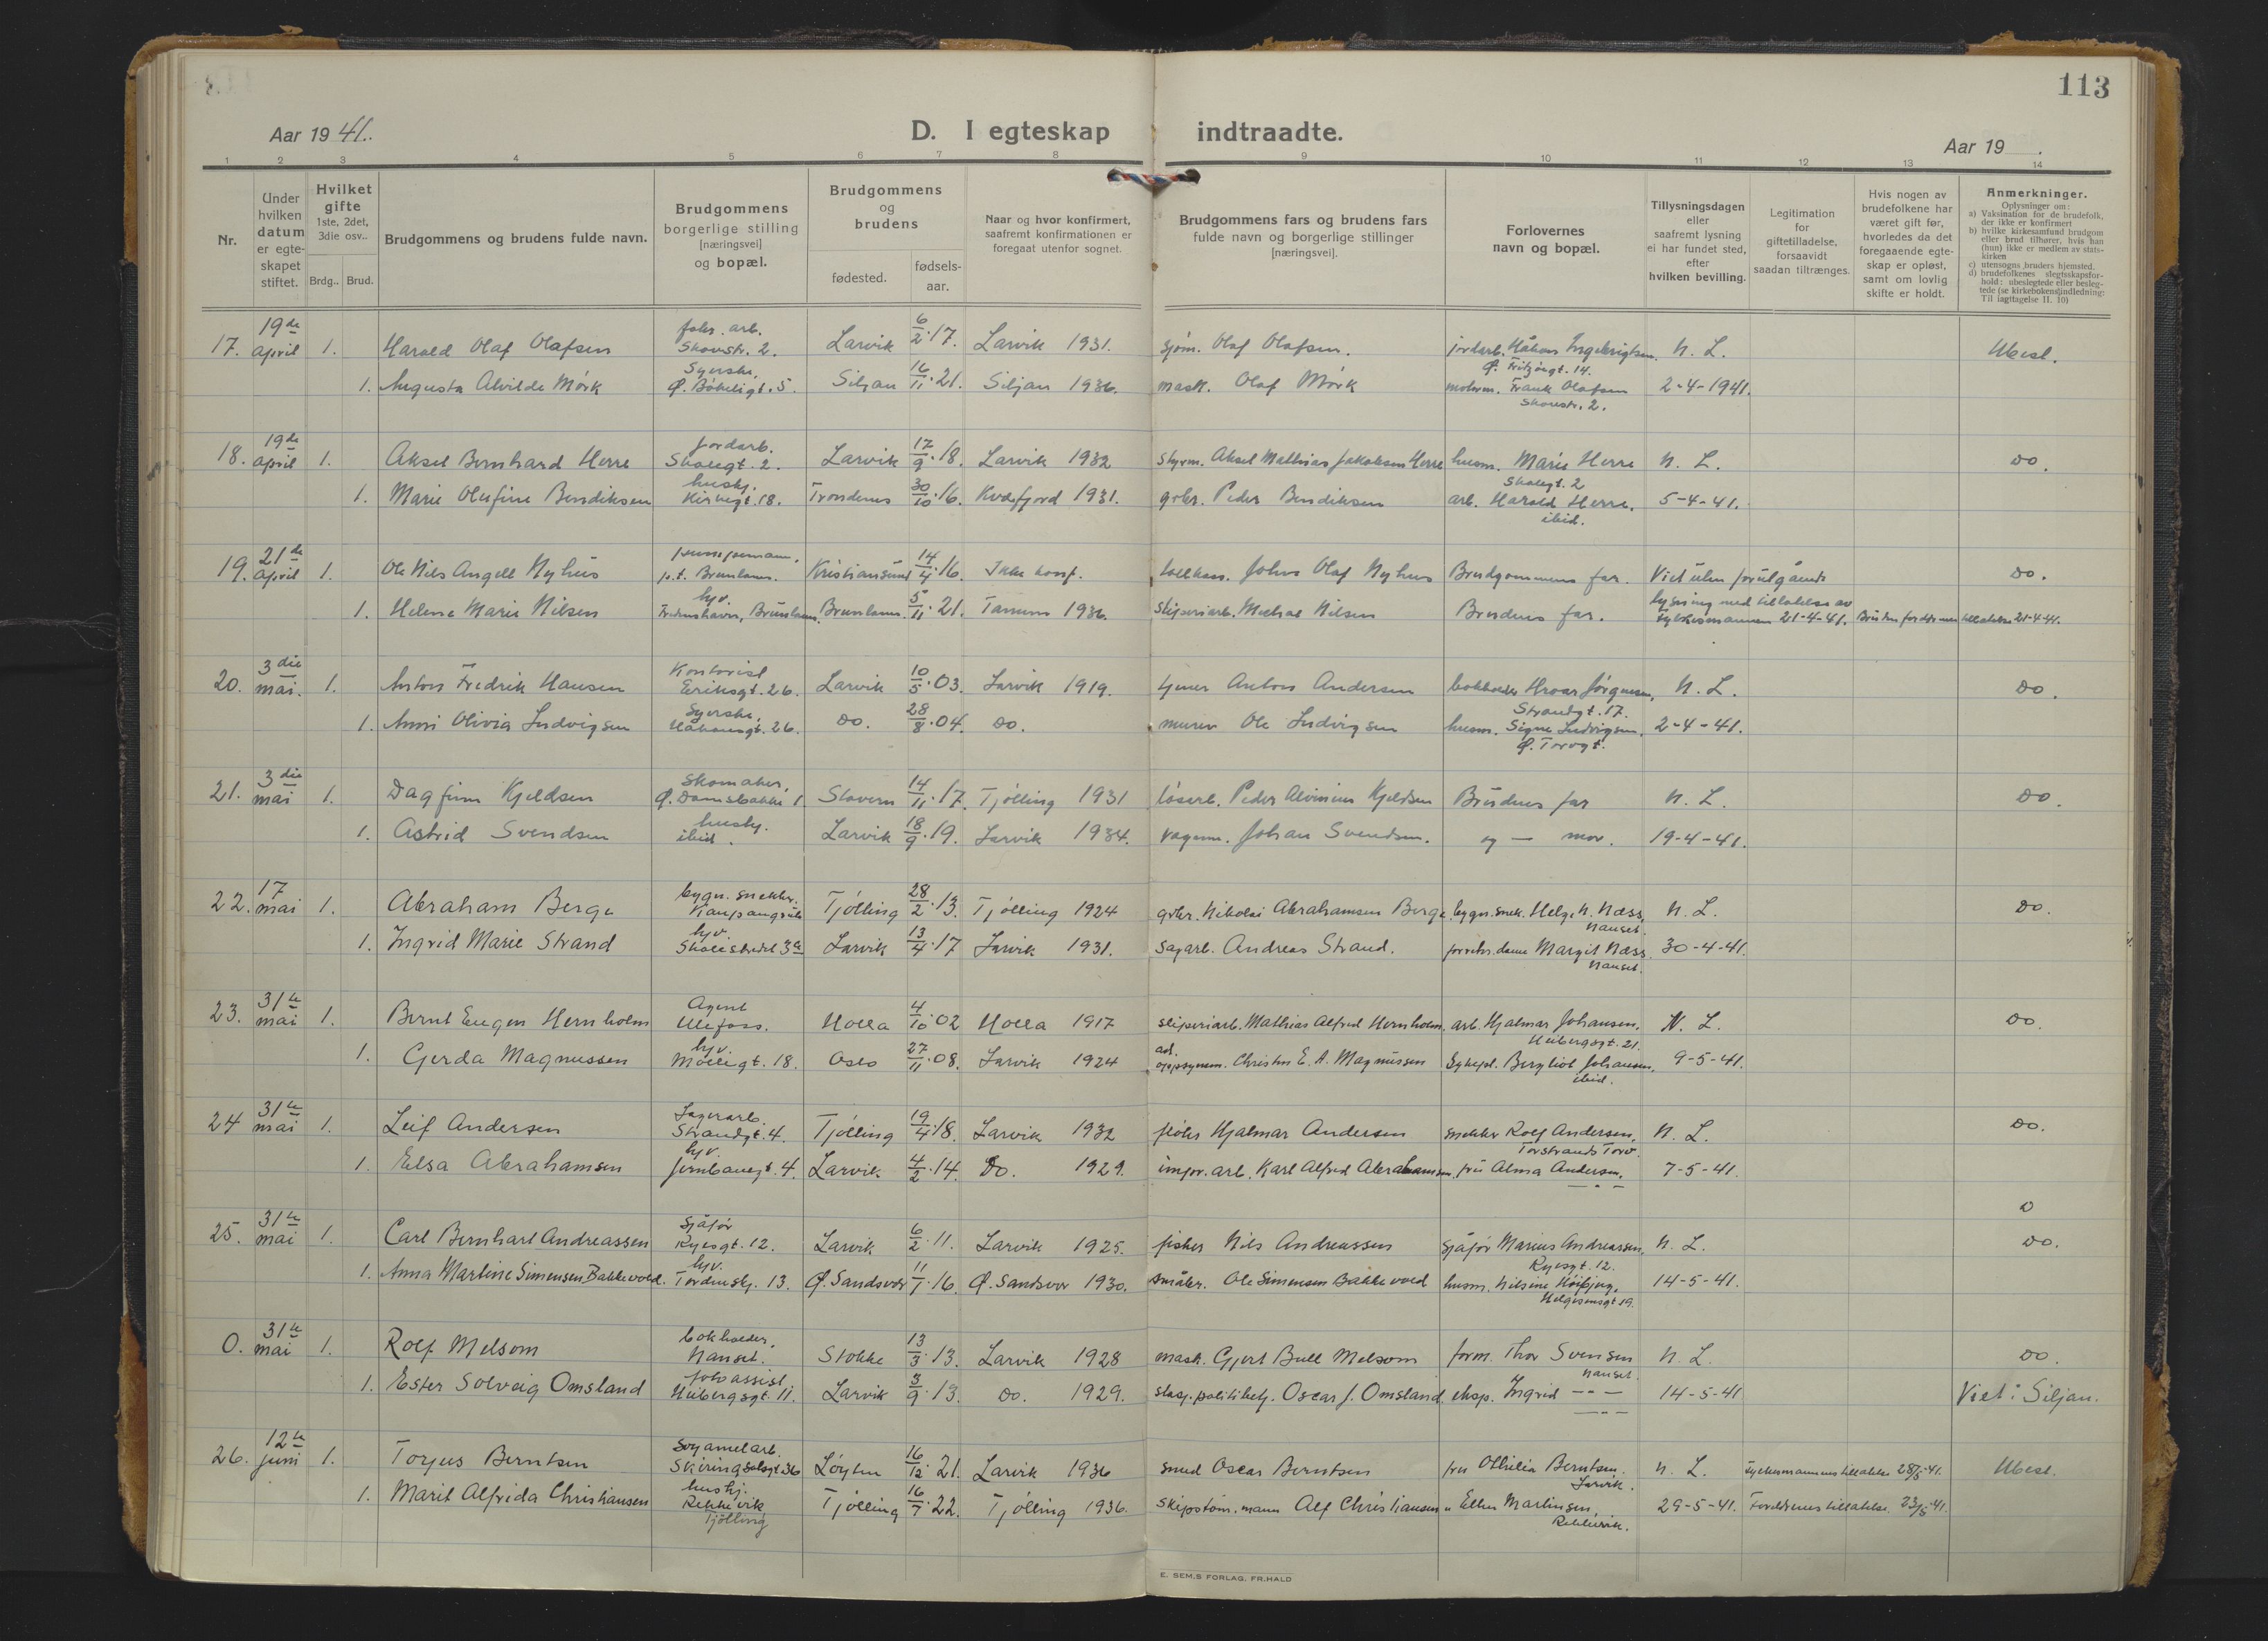 113
Aar 19 41.
D. I egteskap indtraadte.
Aar 19
1 2 3 4 5 6 7 8 9 10 11 12 13 14
Nr.
Under hvilken datum er egte-skapet stiftet.
Hvilket gifte 1ste, 2det, 3die osv..
Brdg.. Brud.
Brudgommens og brudens fulde navn.
Brudgommens borgerlige stilling [næringsvei] og bopæl.
Brudgommens og brudens
fødested.
fødsels-aar.
Naar og hvor konfirmert, saafremt konfirmationen er foregaat utenfor sognet.
Brudgommens fars og brudens fars fulde navn og borgerlige stillinger [næringsvei].
Forlovernes navn og bopæl.
Tillysningsdagen eller saafremt lysning ei har fundet sted, efter hvilken bevilling.
Legitimation for giftetilladelse, forsaavidt saadan tiltrænges.
Hvis nogen av brudefolkene har været gift før, hvorledes da det foregaaende egte-skap er opløst, samt om lovlig skifte er holdt.
Anmerkninger.
Oplysninger om:
a) Vaksination for de brudefolk, der ikke er konfirmert
b) hvilke kirkesamfund brudgom eller brud tilhører, hvis han (hun) ikke er medlem av stats-kirken
c) utensogns bruders hjemsted.
d) brudefolkenes slegtsskapsfor-hold: ubeslegtede eller besleg-tede (se kirkebokens indledning: Til iagttagelse II. 10)
17. 19de april 1. Harald Olaf Olafsen fabr. arb. Skovstr. 2. Larvik 6/2.17. Larvik 1931. sjøm. Olaf Olafsen. jordarb. Håkon Ingebrigtsen. Ø. Fritzøegt. 14. N. L. Ubesl.
1. Augusta Alvilde Mørk Syerske, Ø. Bøkeligt. 5. Siljan 16/11.21. Siljan 1936. mask. Olaf Mørk Frank Olafsen Skovstr. 2. 2-4-1941.
18. 19de april 1. Aksel Bernhard Herre Jordarb. Skolegt. 2. Larvik 17/9.18. Larvik 1932 styrm. Aksel Mathias Jakobsen Herre husm. Marie Herre Skolegt. 2 N. L. do.
1. Marie Olufine Bendiksen hushj. Kirkegt. 18. Trondenes 30/10.16. Kvæfjord 1931. grbr. Peder Bendiksen arb. Harald Herre. ibid. 5-4-41.
19. 21de april 1. Ole Nils Angell Nyhus pumpemann, p.t. Brunlanes. Kristiansund 14/4.16. Ikke konf. tollkass. Johs Olaf Nyhus Brudgommens far. Viet uten forutgående do.
1. Helene Marie Nilsen hjv. Fredrikshavn, Brunlanes. Brunlanes. 5/11.21. Tanum 1936. sliperiarb. Michal Nilsen Brudens far. lysning med tillatelse av fylkesmannen 21-4-41. Brudens foreldrenes tillatelse 21-4-41.
20. 3die mai. 1. Anton Fredrik Hansen Kontorist Eriksgt. 26. Larvik 10/5.03. Larvik 1919. tjener Anton Andersen bokholder Hroar Jørgensen, Strandgt. 17. N. L. do.
1. Anni Olivia Ludvigsen Syerske, Håkonsgt. 26. do. 28/8.04. do. murer Ole Ludvigsen husm. Signe Ludvigsen. Ø. Torvgt. 2-4-41.
21. 3die mai 1. Dagfinn Kjeldsen Skomaker, Ø. Damsbakke 1 Stavern 14/11.17. Tjølling 1931 løsarb. Peder Alvinius Kjeldsen Brudens far N. L. do.
1. Astrid Svendsen hushj. ibid. Larvik 18/9.19. Larvik 1934. vognm. Johan Svendsen. og — mor. 19-4-41.
22. 17 mai 1. Abraham Berge bygn. snekker. Kaupangveien Tjølling 28/2.13. Tjølling 1924 grbr. Nikolai Abrahamsen Berge. bygn. snek. Helge N. Næss, Nanset. N. L. do.
1. Ingrid Marie Strand hjv. Skolestredet 3a Larvik 13/4.17 Larvik 1931. sagarb. Andreas Strand. forretn. dame Margit Næss. Nanset. 30-4-41.
23. 31te mai 1. Bernt Eugen Hernholm Agent Ulefoss. Holla 4/10.02 Holla 1917 sliperiarb. Mathias Alfred Hernholm. arb. Hjalmar Johansen, Heibergsgt. 21. N. L. do.
1. Gerda Magnussen hjv. Møllegt. 18. Oslo 27/11.08. Larvik 1924 ad. oppsynsm. Christen E. A. Magnussen Sykepl. Bergliot Johansen, ibid. 9-5-41.
24 31te mai 1. Leif Andersen Lagerarb. Strandgt. 4. Tjølling 19/4.18. Larvik 1932 fisker Hjalmar Andersen snekker Rolf Andersen, Torstrands Torv. N. L. do.
1. Elsa Abrahamsen hjv. Jernbanegt. 4. Larvik 4/2.14. Do. 1929. impr. arb. Karl Alfred Abrahamsen. fru Alma Andersen. — " — 7-5-41.
25. 31te mai 1. Carl Bernhart Andreassen Sjåfør Ryesgt. 12. Larvik 6/2.11. Larvik 1925. fisker Nils Andreassen sjåfør Marius Andreassen, Ryesgt. 12. N. L. do.
1. Anna Martine Simensen Bakkevold. hjv. Tordenskj. 13. Ø. Sandsvær 11/1.16. Ø. Sandsvær 1930. småbr. Ole Simensen Bakkevold husm. Nilsine Helgesensgt 19. 14-5-41.
0. 31te mai 1. Rolf Melsom bokholder, Nanset. Stokke 13/3.13. Larvik 1928 mask. Gjert Bull Melsom form. Thor Svensen Nanset. N. L. do.
1. Ester Solveig Omsland fotoassist. Heibergsgt. 11. Larvik 3/9.13. do. 1929. stasj. politibetj. Oscar J. Omsland. eksp. Ingrid — " — — " — 14-5-41 Viet i Siljan.
26. 12te juni 1. Torjus Berntsen Soyamelarb. Skiringsalsgt 36 Løyten 16/12.21. Larvik 1936 smed Oscar Berntsen fru Othilia Berntsen. Larvik. N. L. Fylkesmannens tillatelse 28/5-41. Ubesl.
1. Marit Alfrida Christiansen hushj. Rekkevik Tjølling Tjølling 16/7.22. Tjølling 1936. skipstøm. mann Alf Christiansen " Ellen Martinsen, Rekkevik. 29-5-41. Foreldrenes tillatelse. 23/5-41.
E. SEM.S FORLAG. FR.HALD